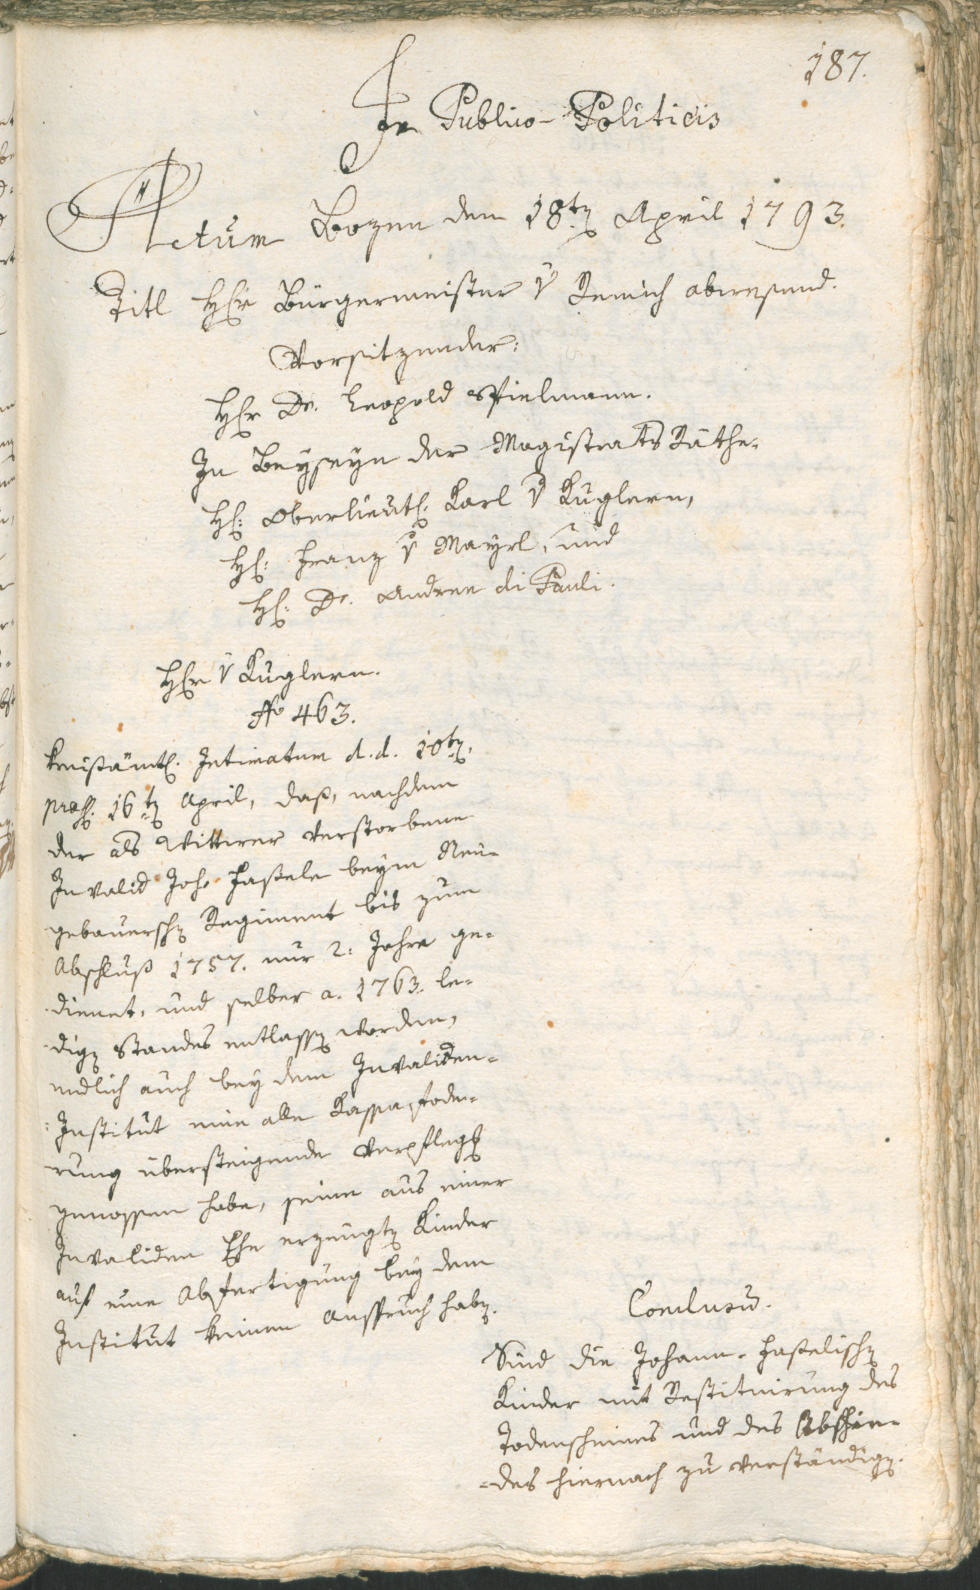 187.
In Publico-Politicis
Actum Bozen den 18t. April 1793.
Titl Hr Bürgermeister v Remich abwesend.
Vorsitzender:
Hr Dr. Leopold Spielmann.
In Beyseyn der Magistrats Räthe.
H: Oberlieut: Karl v Kuglern,
H: Franz v Mayrl, und
H: Dr. Andree di Pauli.
Hr v Kuglern.
No 463.
Kreisämtl. Intimatum d. d. 10t.
præs. 16t. April, daß, nachdem
der als Wittwer verstorbene
Invalid Joh. Haßele beym Neu-
gebauersch. Regiment bis zum
Abschluß 1757. nur 2: Jahre ge-
dienet, und selber a. 1763. le-
dig. Standes entlass. worden,
endlich auch bey dem Invaliden-
Institut eine alle Kassa, fode-
rung übersteigende Verpfleg.
genossen habe, seine aus einer
Invaliden Ehe erzeugt. Kinder
auf eine Abfertigung bey dem
Institut keinen Anspruch hab.
Conclusu.
Sind die Johann-Haßelisch.
Kinder mit Restituirung des
Todenscheines und des Abschie-
des hiernach zu verständig.